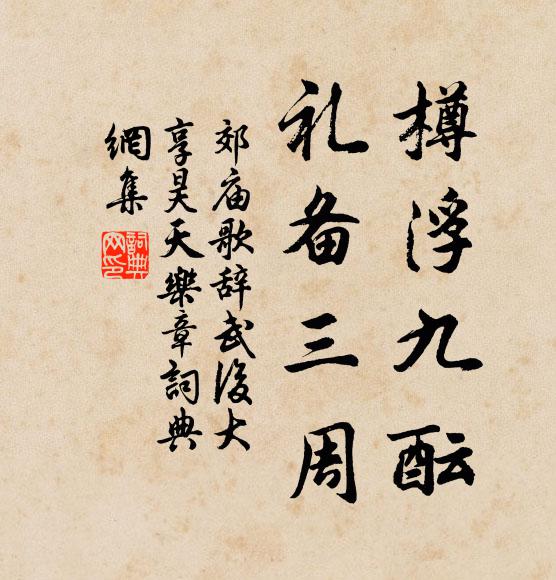 樽浮九酝
礼备三周
郊庙歌辞武後大
享昊天樂章詞典
網集
詞典
网印